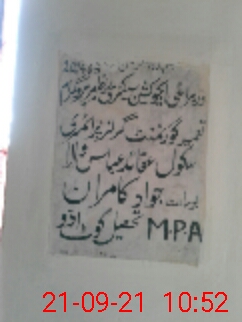 وزیراعلی ایجوکیشن سیکٹر ریفارمز پروگرام
تعمیر گورنمنٹ گرلز پرائمری
سکول عقائد عباس والا
جواد کامران
M.P.A تحصیل کوٹ ادو
21-09-21 10:52